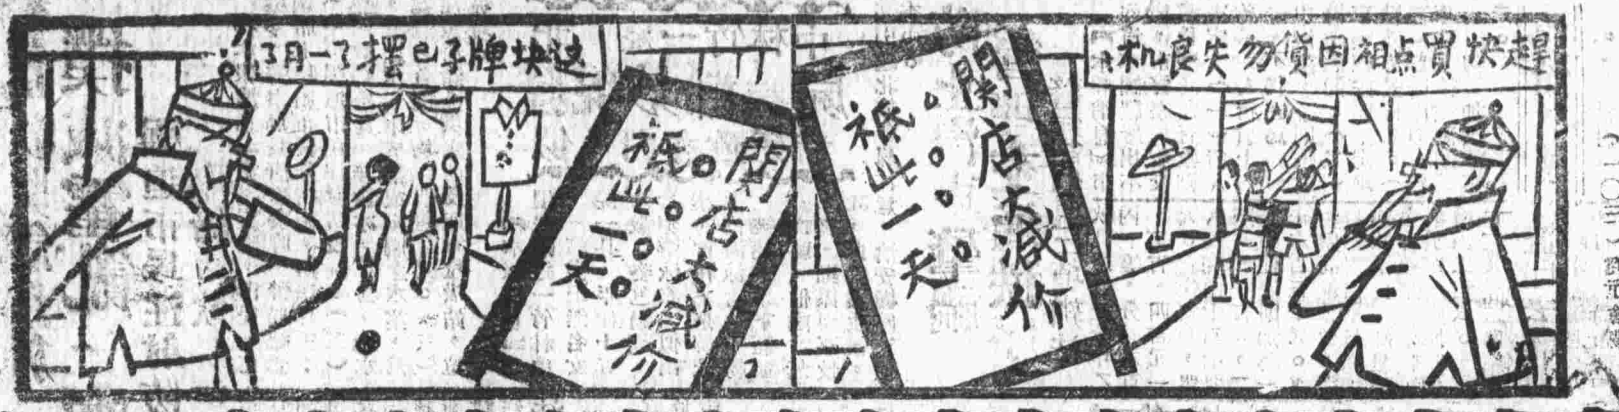 趕快買点相因貨勿失良机
関店大減价
祗此一天
这块牌子已擺了一月了
関店大減价
祗此一天